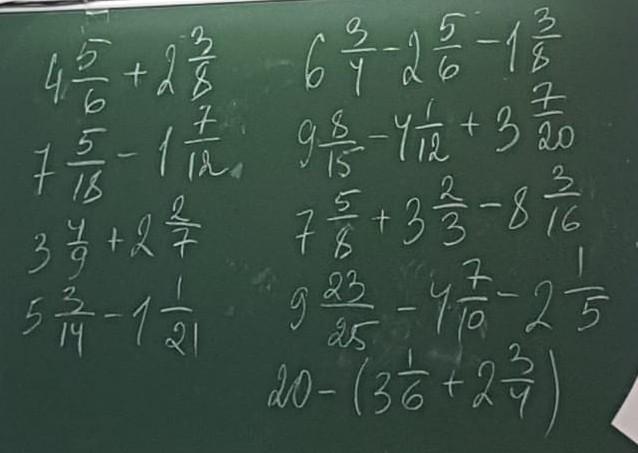 4 5/6 + 2 3/8
7 5/18 - 1 7/12
3 4/9 + 2 2/7
5 3/14 - 1 1/21
6 3/4 - 2 5/6 - 1 3/8
9 8/15 - 4 1/12 + 3 7/20
7 5/8 + 3 2/3 - 8 3/16
9 23/25 - 4 7/10 - 2 1/5
20 - (3 1/6 + 2 3/4)